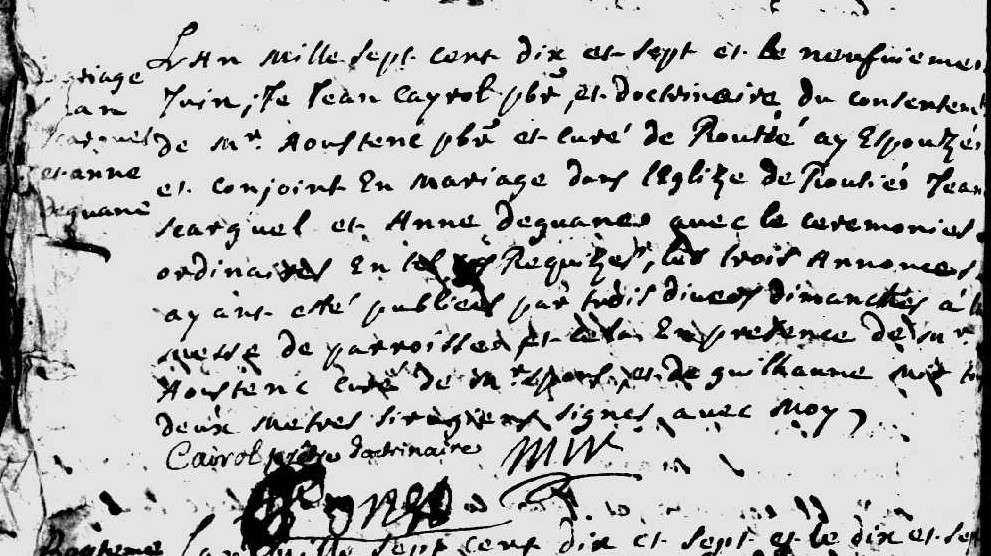 mariage
Jean
scarguel
et anne
deguane
L'An mille sept cent dix et sept et le neufviemes
Juin, Je Jean Cayrol pbre et doctrinaire du consentem
de Mr. Aoustenc pbre et curé de Routié ay Espouzés
et conjoint En mariage dans l'Eglize de Routiés Jean
scarguel et Anne deguanes avec le ceremonies
ordinaires En tel cas Requizes, les trois Annonces
ayant esté publiées par trois divers dimanches à la
messe de parroisse et cela En presence de Mr
Aoustenc curé de Mr. et de guilhaume Mir tou
deux metres sirurgiens signes avec moy,
Cairol prêtre doctrinaire Mir
Bapteme L'an mille sept cent dix et sept et le dix et sep